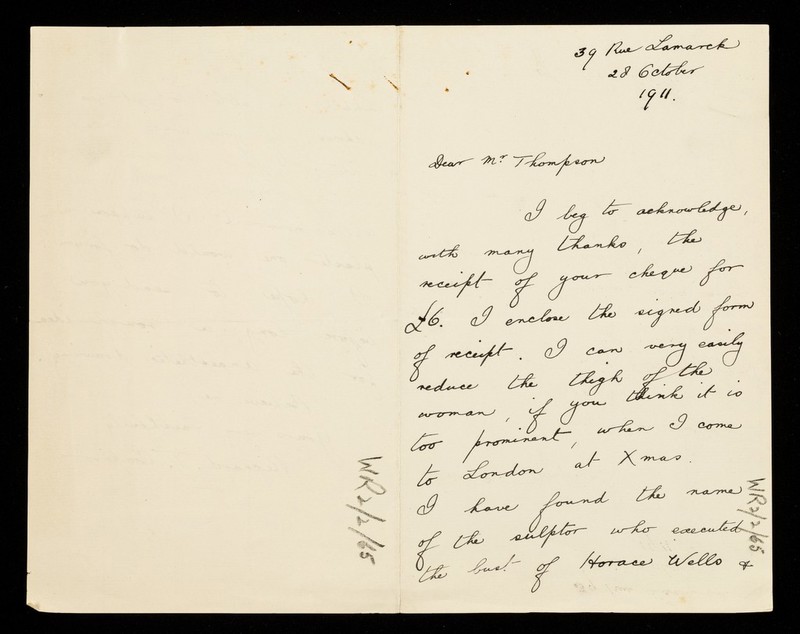 39 Rue Lamarck
28 October
1911.
Dear Mr. Thompson
I beg to acknowledge,
with many thanks, the
receipt of your cheque for
£6. I enclose the signed form
of receipt. I can very easily
reduce the thigh of the
woman, if you think it is
too prominent, when I come
to London at Xmas.
I have found the name
of the sulptor who executed
the bust of Horace Wells &
WR2/2/65
WR2/2/65